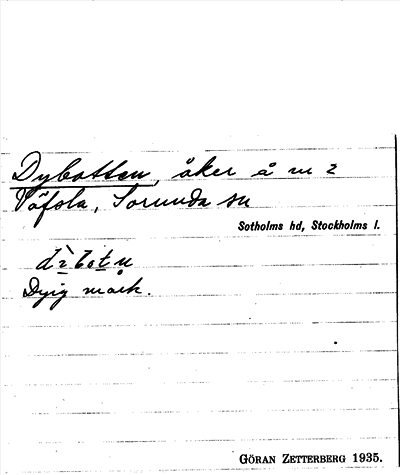 Dybotten, åker å nr 2
Väfsla, Sorunda sn
Sotholms hd, Stockholms l.
Dyig mark.
GÖRAN ZETTERBERG 1935.